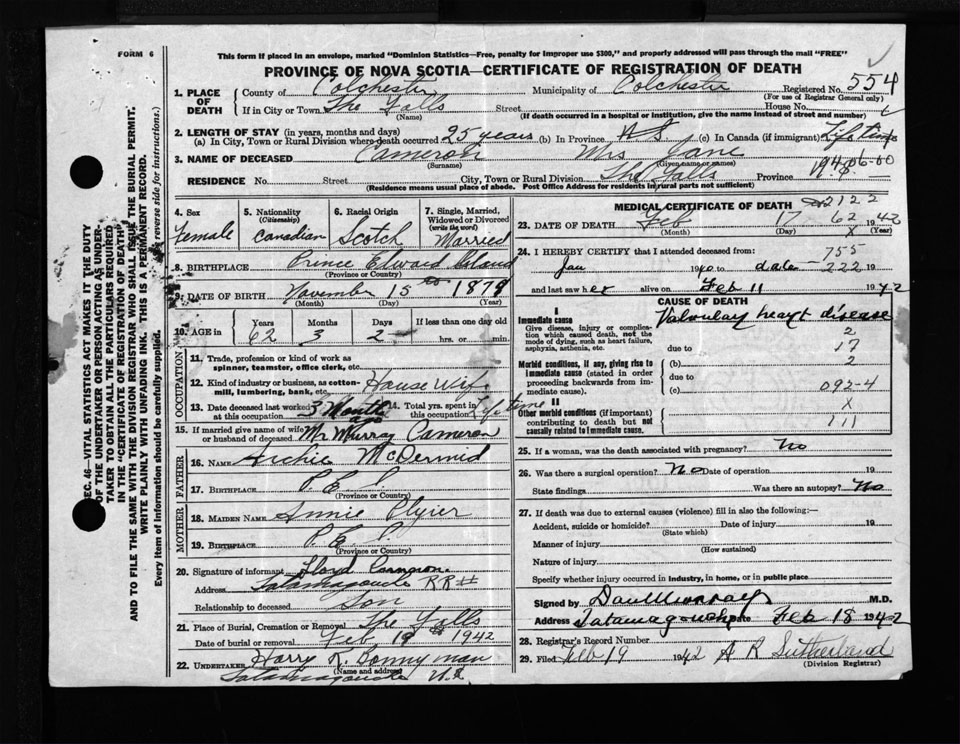 FORM 6
This form if placed in an envelope, marked "Dominion Statistics—Free, penalty for improper use $300," and properly addressed will pass through the mail "FREE"
PROVINCE OF NOVA SCOTIA—CERTIFICATE OF REGISTRATION OF DEATH
1. PLACE OF DEATH County of Colchester Municipality of Colchester Registered No. 554
(For use of Registrar General only)
If in City or Town The Falls Street House No.
(Name) (If death occurred in a hospital or institution, give the name instead of street and number)
2. LENGTH OF STAY (in years, months and days)
(a) In City, Town or Rural Division where death occurred 25 years (b) In Province N S (c) In Canada (if immigrant) Life time
3. NAME OF DECEASED Cameron Mrs Jane
(Surname) (Given name or names)
RESIDENCE No. Street City, Town or Rural Division The Falls Province N.S.
(Residence means usual place of abode. Post Office Address for residents in rural parts not sufficient)
4. Sex Female
5. Nationality (Citizenship) Canadian
6. Racial Origin Scotch
7. Single, Married, Widowed or Divorced (write the word) Married
8. BIRTHPLACE Prince Edward Island
(Province or Country)
9. DATE OF BIRTH November 15th 1879
(Month) (Day) (Year)
10. AGE in Years Months Days If less than one day old
62 3 2 hrs. or min.
OCCUPATION
11. Trade, profession or kind of work as spinner, teamster, office clerk, etc.
12. Kind of industry or business, as cotton-mill, lumbering, bank, etc. House Wife
13. Date deceased last worked at this occupation 3 Month ago 14. Total yrs. spent in this occupation Lifetime
15. If married give name of wife or husband of deceased Mr Murray Cameron
FATHER
16. NAME Archie McDermid
17. BIRTHPLACE P. E. I
(Province or Country)
MOTHER
18. MAIDEN NAME Annie Plyier
19. BIRTHPLACE P. E. I.
(Province or Country)
20. Signature of informant Lloyd Cameron
Address Tatamagouche RR#
Relationship to deceased Son
21. Place of Burial, Cremation or Removal The Falls
Date of burial or removal Feb 19th 1942
22. UNDERTAKER Harry R. Bonnyman
(Name and address)
Tatamagouche N.S.
MEDICAL CERTIFICATE OF DEATH 2122
23. DATE OF DEATH Feb 17 62 1942
(Month) (Day) X (Year)
24. I HEREBY CERTIFY that I attended deceased from: 755
Jan 1940 to date 222 19
and last saw her alive on Feb 11 1942
CAUSE OF DEATH
I
Immediate cause Valvulary heart disease
Give disease, injury or complication which caused death, not the mode of dying, such as heart failure, asphyxia, asthenia, etc.
2
due to 17
Morbid conditions, if any, giving rise to immediate cause (stated in order proceeding backwards from immediate cause).
(b) 2
due to
(c) 092-4
II
X
Other morbid conditions (if important) contributing to death but not causally related to immediate cause.
111
25. If a woman, was the death associated with pregnancy? No
26. Was there a surgical operation? No Date of operation 19
State findings Was there an autopsy? No
27. If death was due to external causes (violence) fill in also the following:—
Accident, suicide or homicide? Date of injury 19
(State which)
Manner of injury
(How sustained)
Nature of injury
Specify whether injury occurred in industry, in home, or in public place
Signed by Dan Murray M.D.
Address Tatamagouche Date Feb 18 1942
28. Registrar's Record Number
29. Filed Feb 19 1942 A R Sutherland
(Division Registrar)
SEC. 46—VITAL STATISTICS ACT MAKES IT THE DUTY
OF THE UNDERTAKER OR PERSON ACTING AS UNDER-
TAKER TO OBTAIN ALL THE PARTICULARS REQUIRED
IN THE "CERTIFICATE OF REGISTRATION OF DEATH"
AND TO FILE THE SAME WITH THE DIVISION REGISTRAR WHO SHALL ISSUE THE BURIAL PERMIT.
WRITE PLAINLY WITH UNFADING INK. THIS IS A PERMANENT RECORD.
Every item of information should be carefully supplied. reverse side for instructions.)